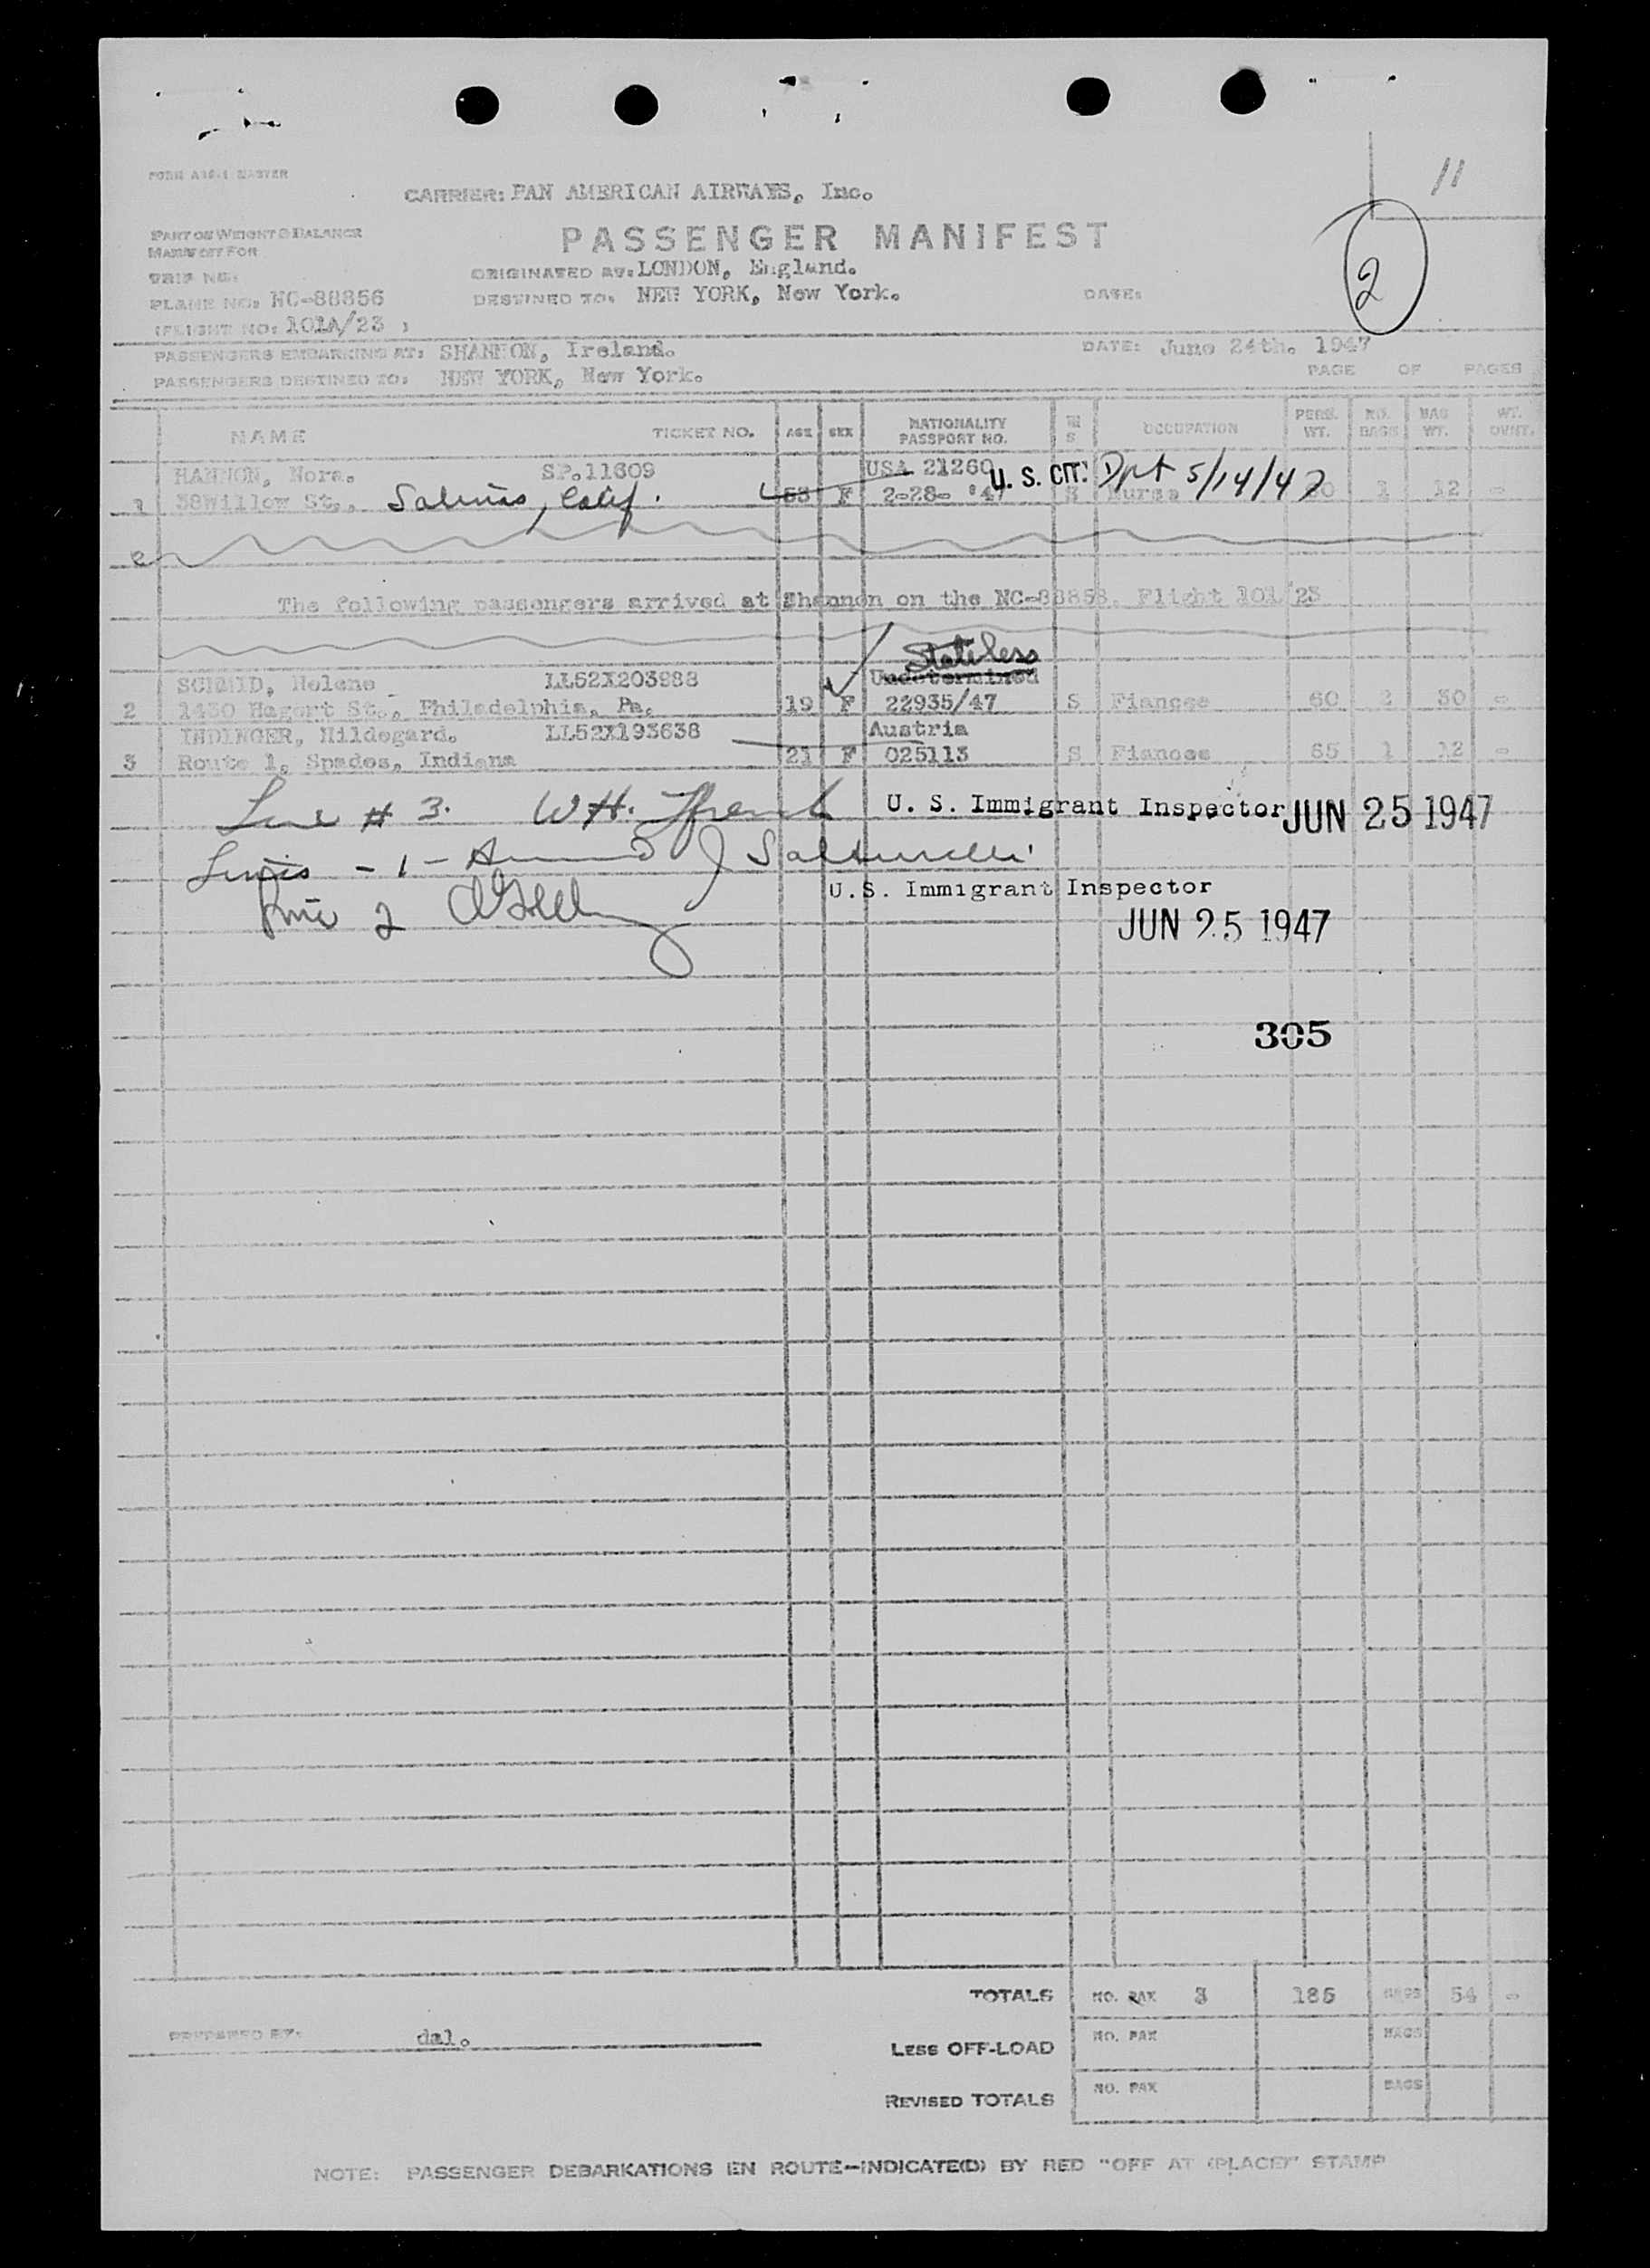 11
FORM A18-1 MASTER
CARRIER: PAN AMERICAN AIRWAYS, Inc.
PART OF WEIGHT & BALANCE
MANIFEST FOR
PASSENGER MANIFEST
2
TRIP NO:
ORIGINATED AT: LONDON, England.
PLANE NO: NC-88856
DESTINED TO: NEW YORK, New York.
DATE:
(FLIGHT NO: 101A/23 )
PASSENGERS EMBARKING AT: SHANNON, Ireland.
DATE: June 24th. 1947
PASSENGERS DESTINED TO: NEW YORK, New York.
PAGE OF PAGES
NAME TICKET NO. AGE SEX NATIONALITY PASSPORT NO. M S OCCUPATION PERS. WT. NO. BAGS BAG WT. WT. OVHT.
HANNON, Nora. SP.11609 USA 21260 U. S. CIT. Dpt 5/14/47
1 38Willow St., Salinas, Calif. 53 F 2-28-'47 S Nurse 60 1 12 -
The following passengers arrived at Shannon on the NC-88858. Flight 101/23
Stateless
SCHMID, Helene LL52X203988 Undetermined
2 1430 Hagert St., Philadelphia, Pa. 19 F 22935/47 S Fiancee 60 2 30 -
INDINGER, Hildegard. LL52X193638 Austria
3 Route 1, Spades, Indiana 21 F 025113 S Fiancee 65 1 12 -
Line # 3. W.H. French U. S. Immigrant Inspector JUN 25 1947
Lines - 1 -
U.S. Immigrant Inspector
Line 2
JUN 25 1947
305
TOTALS NO. PAX 3 185 BAGS 54 -
PREPARED BY: dal.
LESS OFF-LOAD NO. PAX BAGS
REVISED TOTALS NO. PAX BAGS
NOTE: PASSENGER DEBARKATIONS EN ROUTE-INDICATE(D) BY RED "OFF AT (PLACE)" STAMP